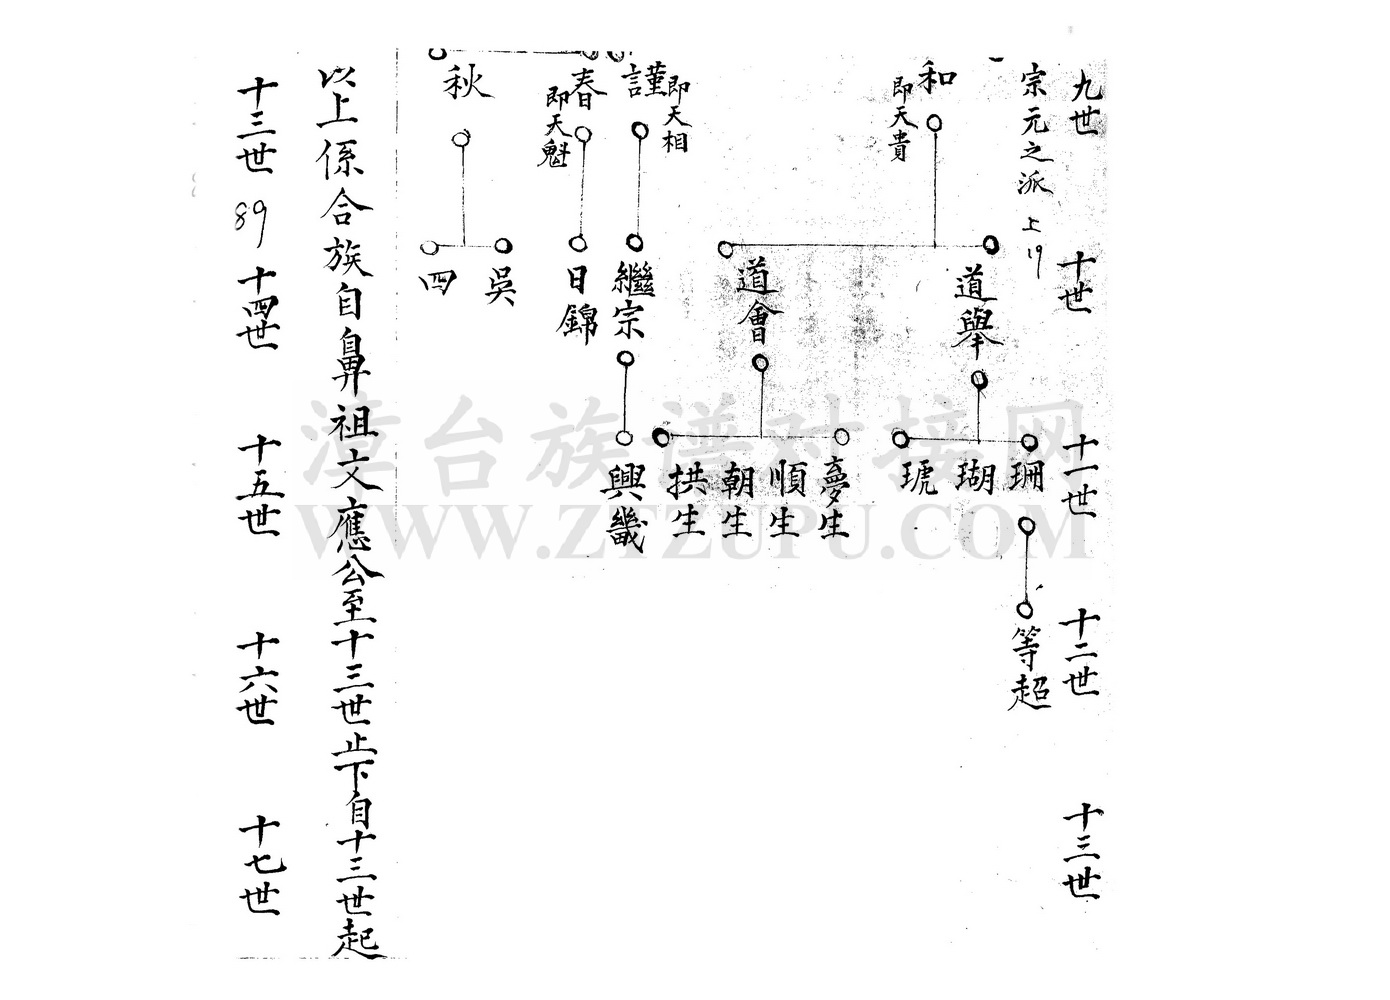 九世
十世
十一世
十二世
十三世
宗元之派 上19
和
即天貴
道舉
珊
瑚
琥
等超
道會
夢生
順生
朝生
拱生
謹
即天相
繼宗
興畿
春
即天魁
日錦
秋
吳
四
以上係合族自鼻祖文應公至十三世止下自十三世起
十三世
89
十四世
十五世
十六世
十七世
漳台族谱对接网
WWW.ZTZUPU.COM